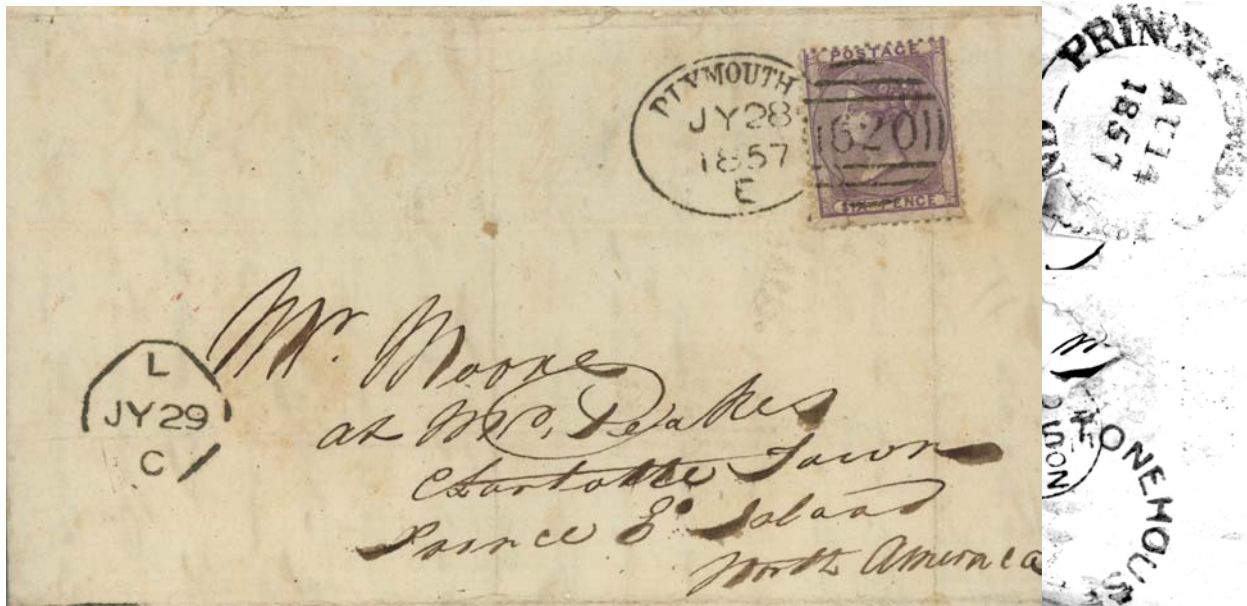 PLYMOUTH
JY28
1857
E
POSTAGE
620
SIX PENCE
L
JY29
C
Mr. Moore
at Mr. Peakes
Charlotte Town
Prince Ed Island
North America
PRINCE
AU 14
1857
STONEHOUS
NOON